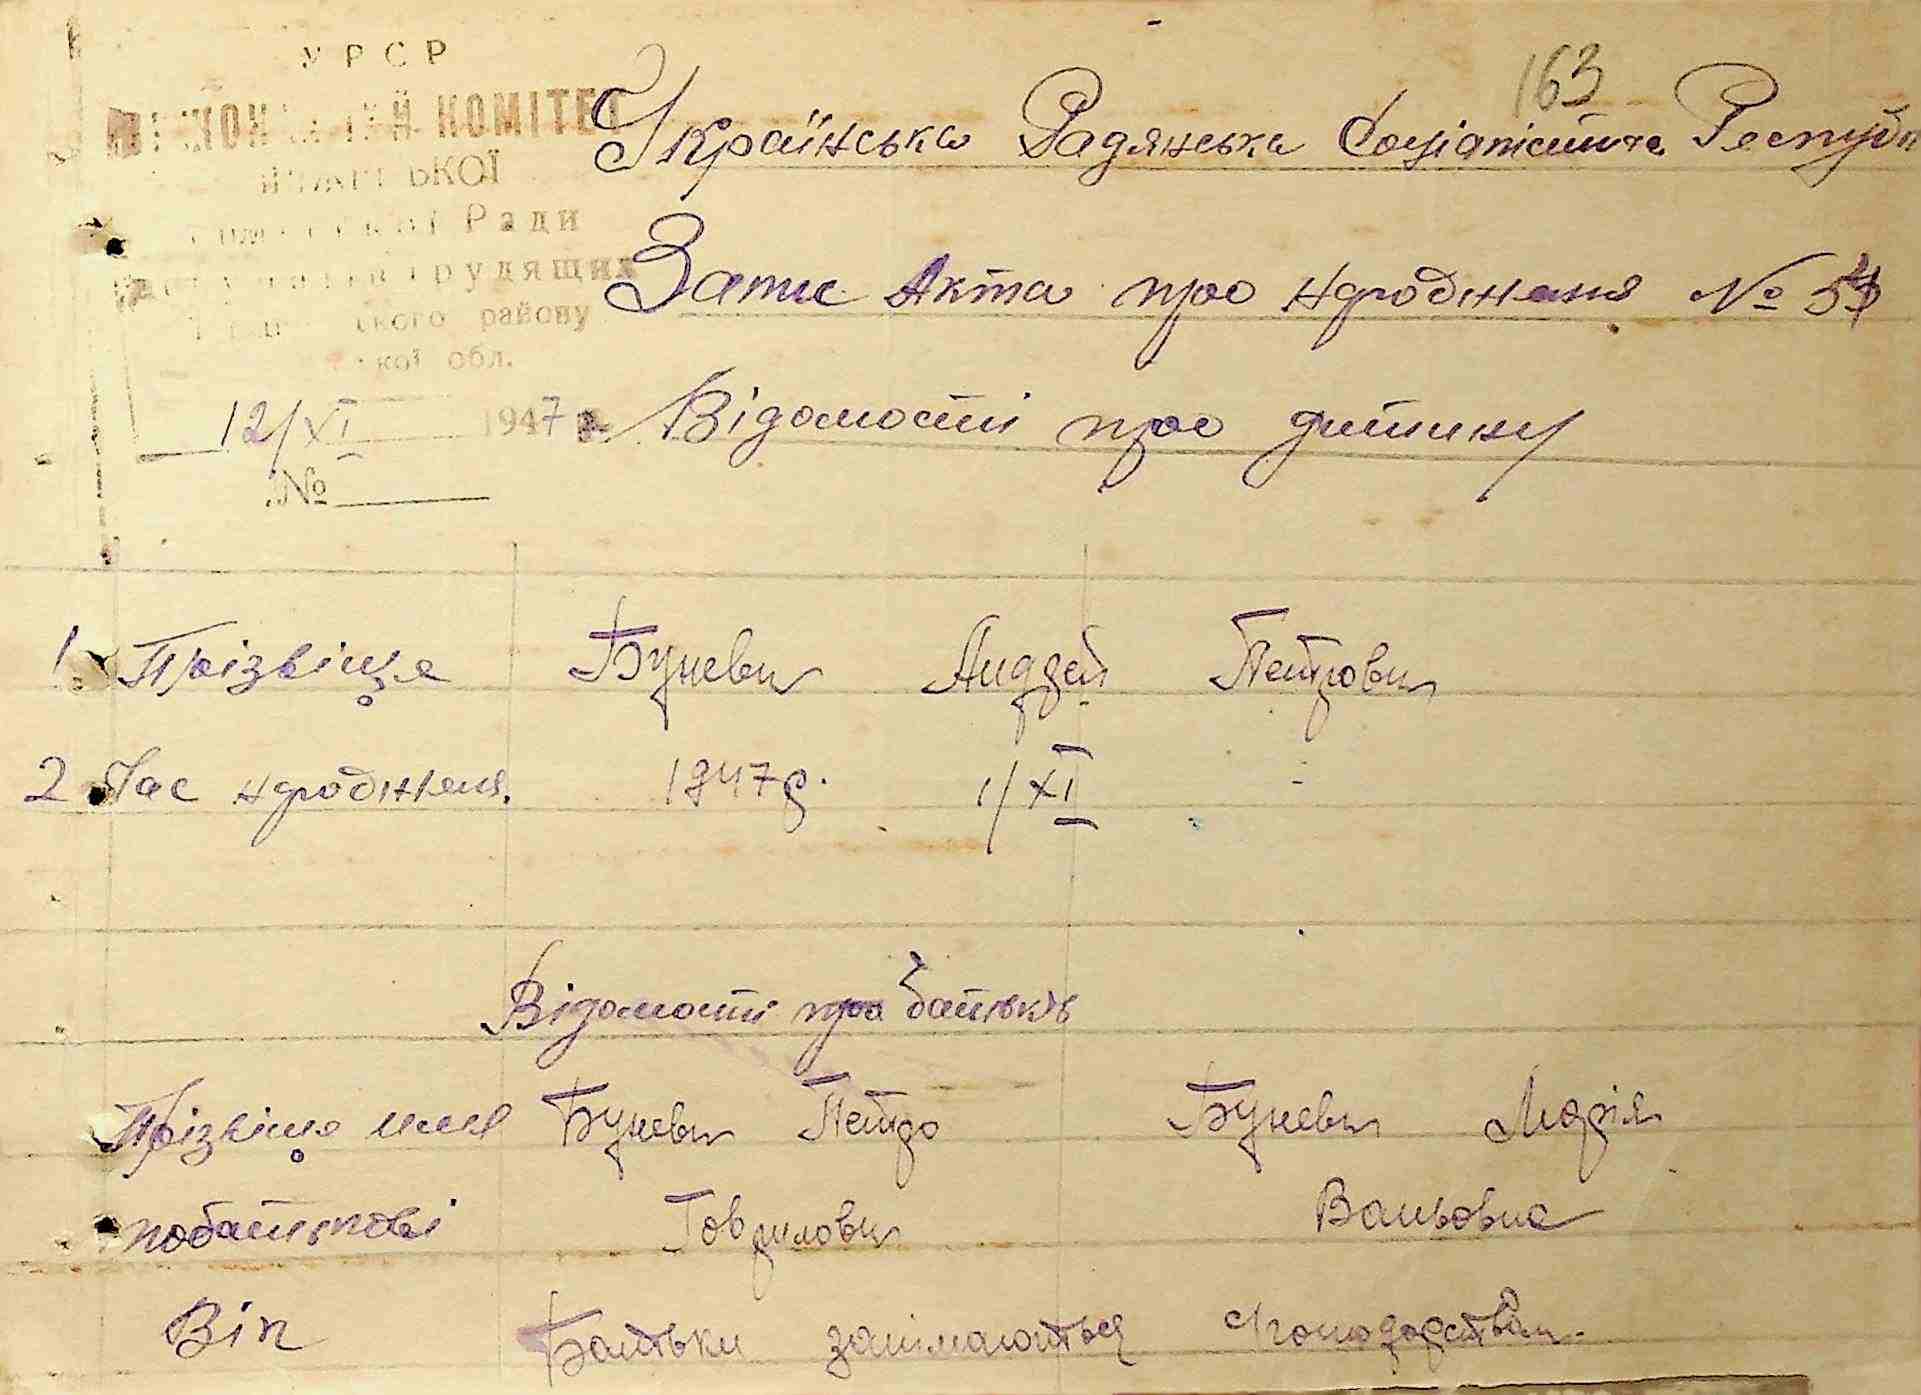 УРСР
КОМІТЕТ
Ради
трудящих
ського району
кої обл.
12/XI 1947 р.
№
163
Українська Радянська Соціалістична Республ
Запис Акта про народженя №
Відомості про дитину
1 Прізвіще Буневич Андрей Петрович
2 Час народженя. 1947 р. 1/XI
Відомості про батьків
Прізвіще имя Буневич Петро Буневич Марія
побатькові Гаврилович Василовна
Вік Батьки занімаються господарством.